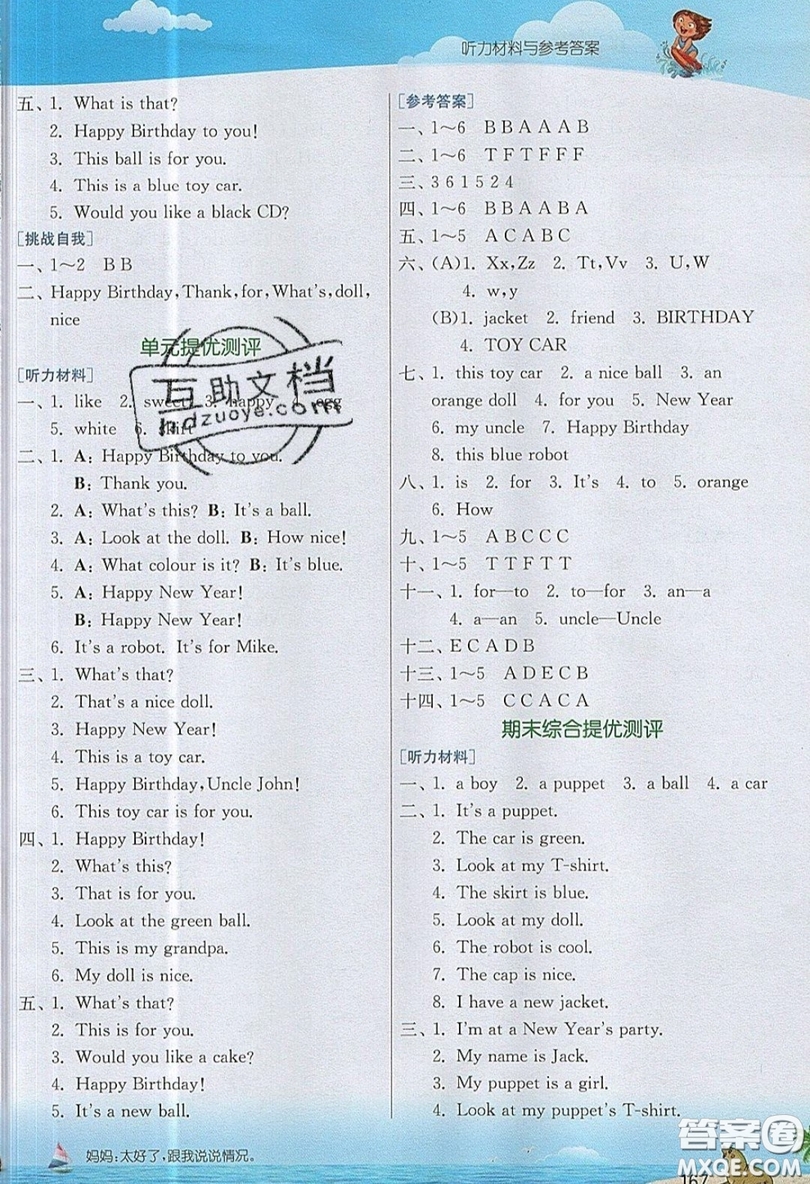 听力材料与参考答案
五、1. What is that?
2. Happy Birthday to you!
3. This ball is for you.
4. This is a blue toy car.
5. Would you like a black CD?
[挑战自我]
一、1～2 B B
二、Happy Birthday, Thank, for, What's, doll,
nice
单元提优测评
[听力材料]
一、1. like 2. sweet 3. happy 4. egg
5. white 6.
二、1. A: Happy Birthday to you.
B: Thank you.
2. A: What's this? B: It's a ball.
3. A: Look at the doll. B: How nice!
4. A: What colour is it? B: It's blue.
5. A: Happy New Year!
B: Happy New Year!
6. It's a robot. It's for Mike.
三、1. What's that?
2. That's a nice doll.
3. Happy New Year!
4. This is a toy car.
5. Happy Birthday, Uncle John!
6. This toy car is for you.
四、1. Happy Birthday!
2. What's this?
3. That is for you.
4. Look at the green ball.
5. This is my grandpa.
6. My doll is nice.
五、1. What's that?
2. This is for you.
3. Would you like a cake?
4. Happy Birthday!
5. It's a new ball.
[参考答案]
一、1～6 B B A A A B
二、1～6 T F T F F F
三、3 6 1 5 2 4
四、1～6 B B A A B A
五、1～5 A C A B C
六、(A)1. Xx,Zz 2. Tt,Vv 3. U,W
4. w,y
(B)1. jacket 2. friend 3. BIRTHDAY
4. TOY CAR
七、1. this toy car 2. a nice ball 3. an
orange doll 4. for you 5. New Year
6. my uncle 7. Happy Birthday
8. this blue robot
八、1. is 2. for 3. It's 4. to 5. orange
6. How
九、1～5 A B C C C
十、1～5 T T F T T
十一、1. for—to 2. to—for 3. an—a
4. a—an 5. uncle—Uncle
十二、E C A D B
十三、1～5 A D E C B
十四、1～5 C C A C A
期末综合提优测评
[听力材料]
一、1. a boy 2. a puppet 3. a ball 4. a car
二、1. It's a puppet.
2. The car is green.
3. Look at my T-shirt.
4. The skirt is blue.
5. Look at my doll.
6. The robot is cool.
7. The cap is nice.
8. I have a new jacket.
三、1. I'm at a New Year's party.
2. My name is Jack.
3. My puppet is a girl.
4. Look at my puppet's T-shirt.
妈妈：太好了，跟我说说情况。
167
互助文档
hdzuoye.com
答案圈
MXQE.COM